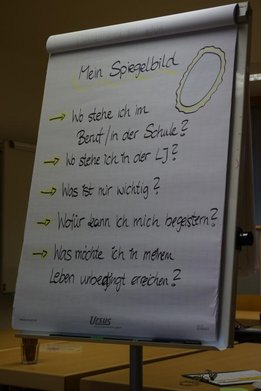 Mein Spiegelbild
Wo stehe ich im
Beruf/in der Schule?
Wo stehe ich in der LJ?
Was ist mir wichtig?
Wofür kann ich mich begeistern?
Was möchte ich in meinem
Leben unbedingt erreichen?
URSUS